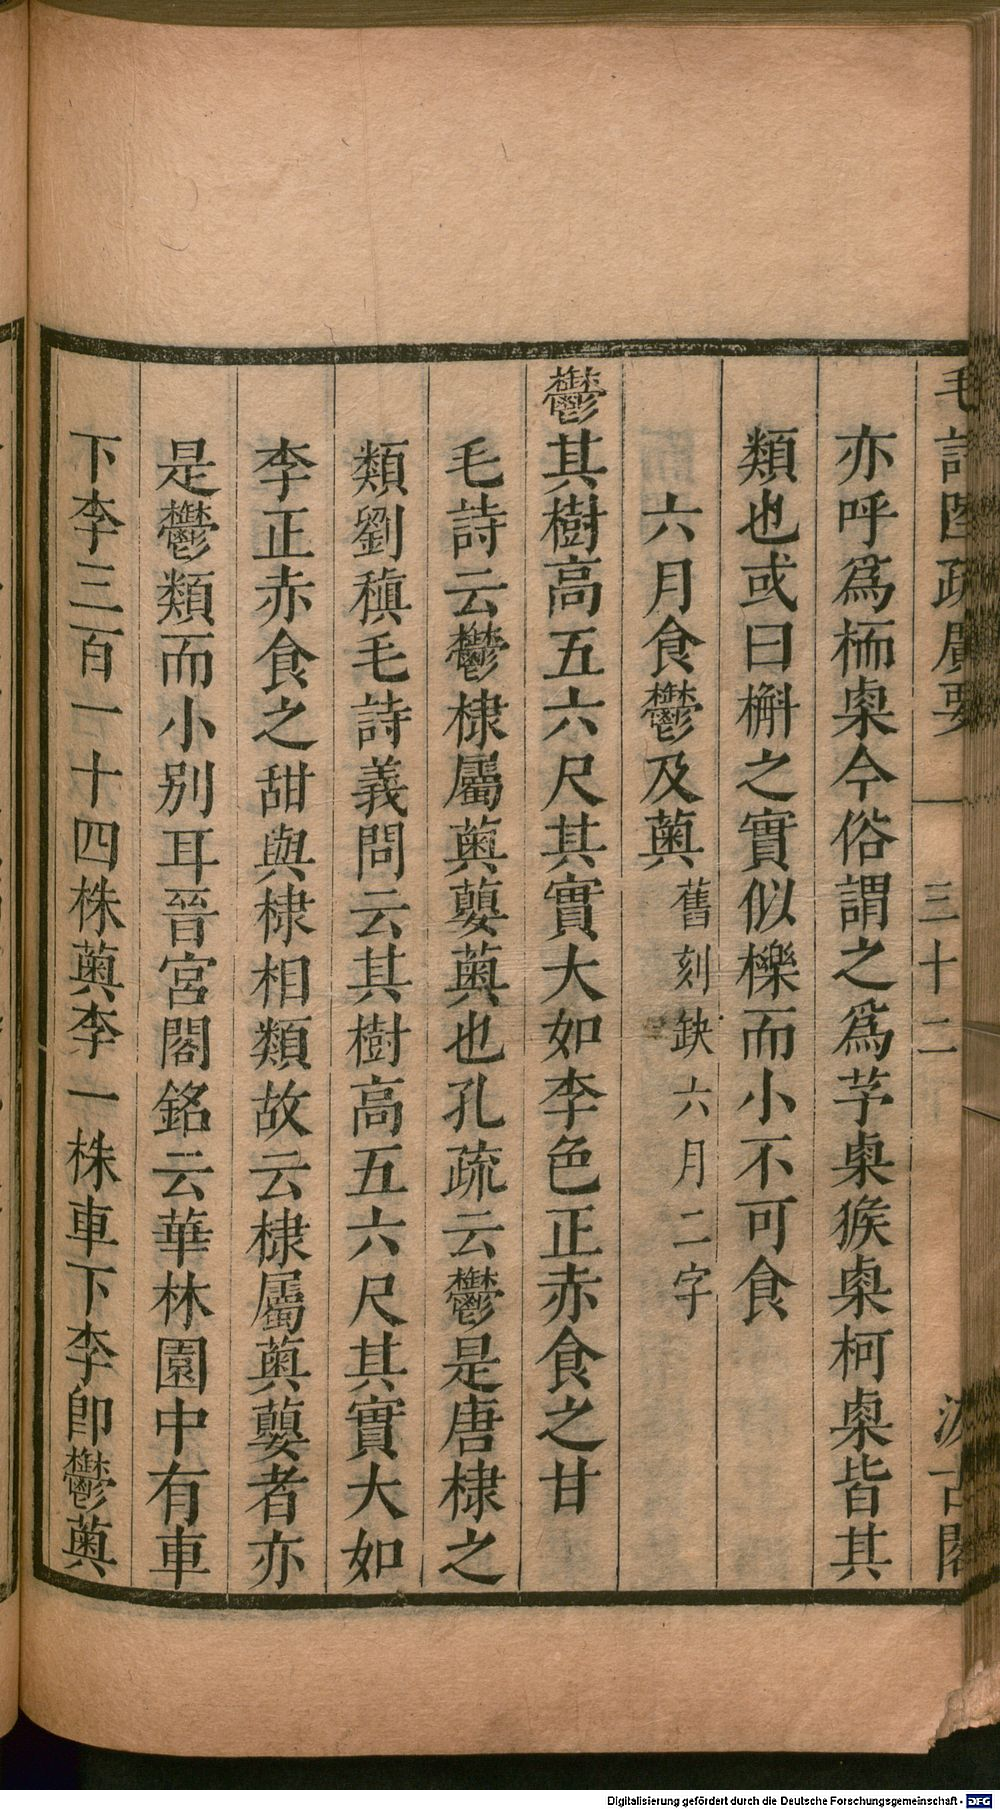 毛詩陸疏廣要 三十二 汲古閣
亦呼爲栭㮚今俗謂之爲芧㮚猴㮚柯㮚皆其
類也或曰槲之實似櫟而小不可食
六月食鬱及薁舊刻缺六月二字
鬱其樹高五六尺其實大如李色正赤食之甘
毛詩云鬱棣屬薁蘡薁也孔疏云鬱是唐棣之
類劉稹毛詩義問云其樹高五六尺其實大如
李正赤食之甜與棣相類故云棣屬薁蘡者亦
是鬱類而小别耳晉宮閣銘云華林園中有車
下李三百一十四株薁李一株車下李卽鬱薁
Digitalisierung gefördert durch die Deutsche Forschungsgemeinschaft - DFG